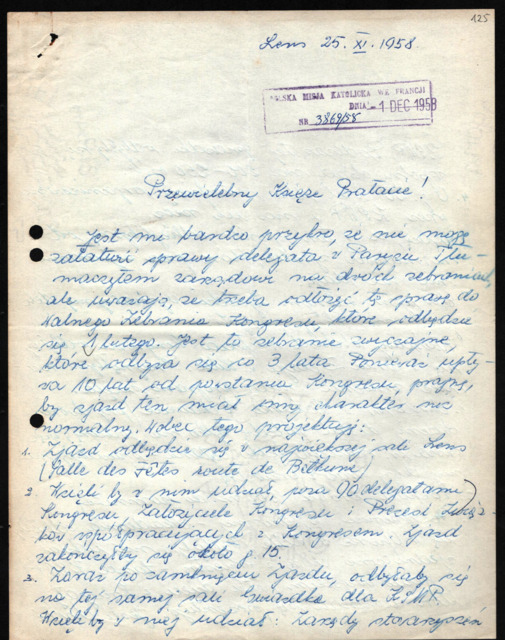 125
Lens 25. XI. 1958
POLSKA MISJA KATOLICKA WE FRANCJI
DNIA - 1 DEC 1958
NR 3869/58
Przewielebny Księże Prałacie!
Jest mi bardzo przykro, że nie mogę
załatwić sprawy delegata w Paryżu. Tłu-
maczyłem zarządowi na dwóch zebraniach,
ale uważają, że trzeba odłożyć tę sprawę do
Walnego Zebrania Kongresu, które odbędzie
się 1 lutego. Jest to zebranie zwyczajne,
które odbywa się co 3 lata. Ponieważ upły-
wa 10 lat od powstania Kongresu pragnę,
by zjazd ten miał inny charakter niż
normalny. Wobec tego projektuję:
1. Zjazd odbędzie się w największej sali Lens
(Salle des Fêtes route de Béthune)
2. Wzięli by w nim udział, poza 90 delegatami
Kongresu, Założyciele Kongresu i Prezesi Związ-
ków współpracujących z Kongresem. Zjazd
zakończyłby się około g. 15
3. Zaraz po zamknięciu Zjazdu, odbyłaby się
na tej samej sali Gwiazdka dla KSMP.
Wzięli by w niej udział: Zarządy stowarzyszeń